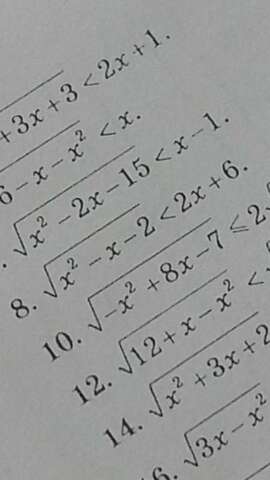 +3x+3 < 2x+1.
6−x−x² < x.
. √x²−2x−15 < x−1.
8. √x²−x−2 < 2x+6.
10. √−x²+8x−7 ≤ 2
12. √12+x−x² <
14. √x²+3x+2
6. √3x−x²